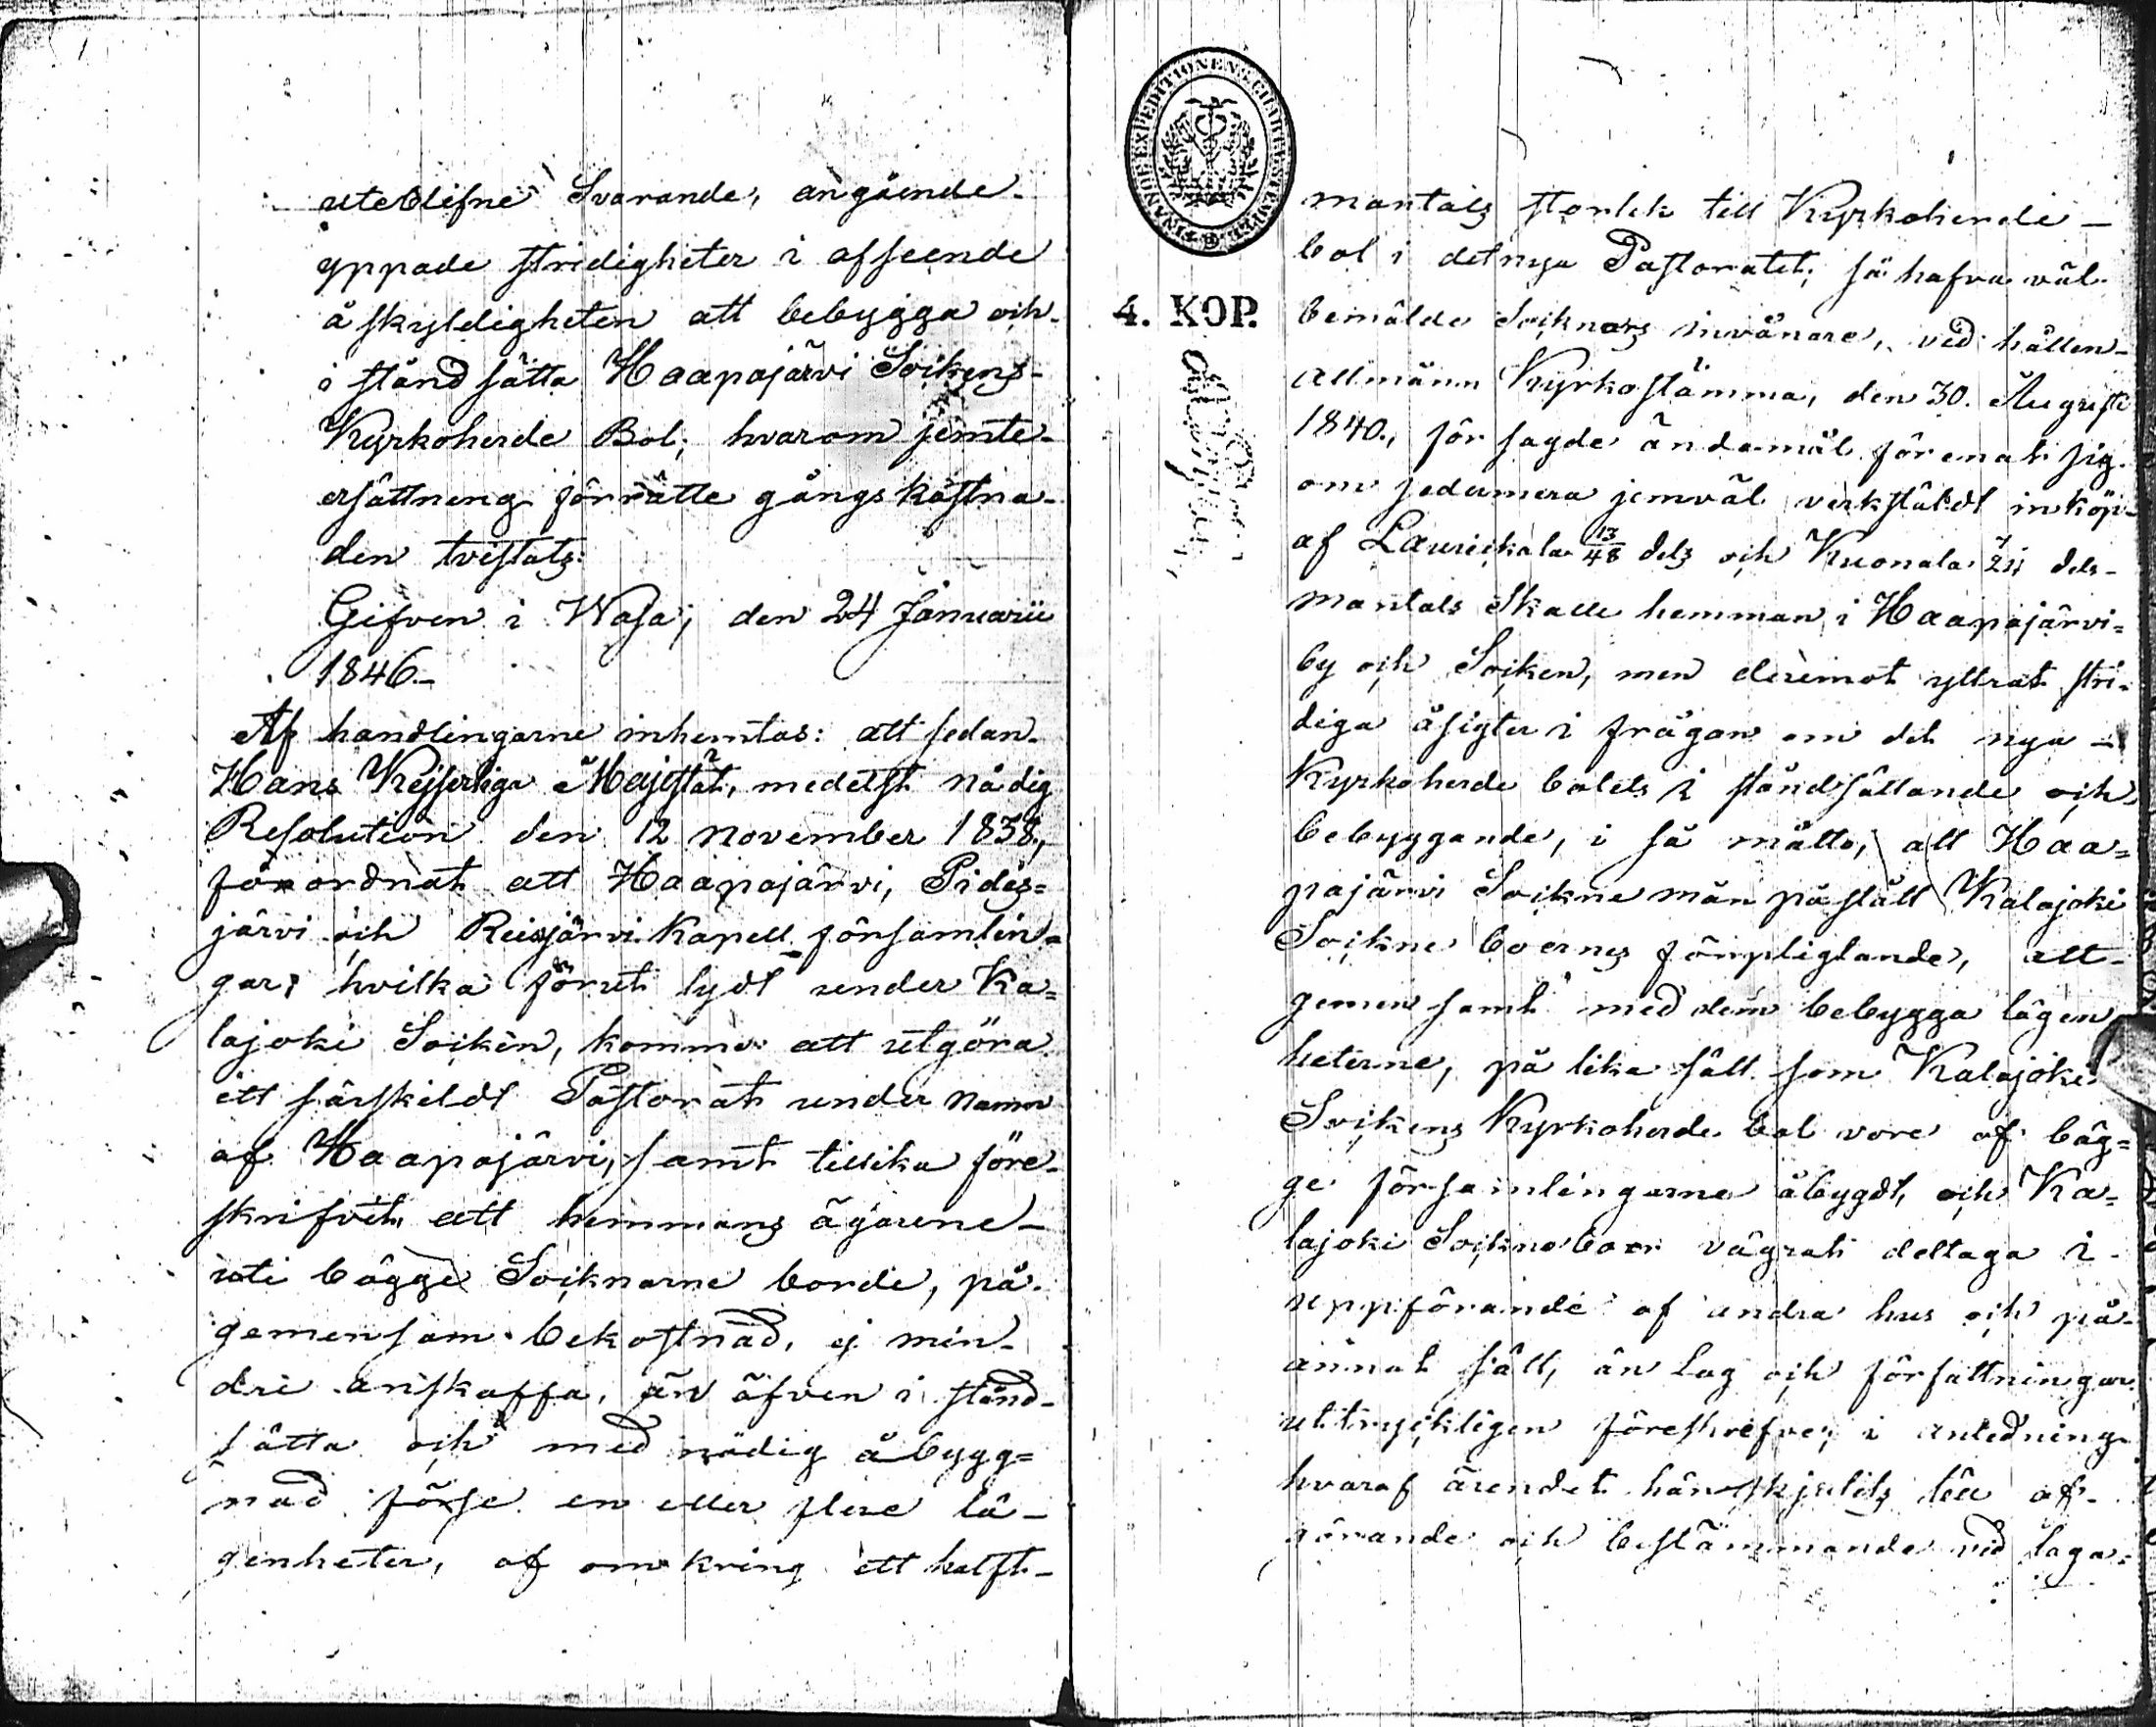 uteblifne Svarande, angående
yppade stridigheter i afseende
å skyldigheten att bebygga och
i stånd sätta Haapajärvi Sockens
Kyrkoherde Bol; hvarom jemte
ersättning för rätte gångs kostna-
den tvistats.
Gifven i Wasa, den 24 Januarii
1846.-
Af handlingarne inhemtas: att sedan
Hans Kejserliga Majestät, medelst nådig
Resolution den 12 November 1838,
förordnat att Haapajärvi, Pides=
järvi och Reisjärvi Kapell församlin=
gar, hvilka förut lydt under Ka=
lajoki Socken, komme att utgöra
ett särskildt Pastorat under namn
af Haapajärvi, samt tillika före-
skrifvit, att hemmans ägarene-
uti bägge Socknarne borde, på
gemensam bekostnad, ej min-
dre anskaffa, än äfven i stånd-
sätta och med nödig åbygg=
nad förse en eller flere lä-
genheter, af omkring ett halft-
FINANCE EXPEDITIONENS CHARTÆ STEMPEL
4. KOP.
mantals storlek till Kyrkoherde-
bol i det nya Pastoratet; så hafva väl
bemälde Socknars invånare, vid hållen
allmänn Kyrkostämma, den 30. Augusti
1840., för sagde ändamål förenat sig
om sedermera jemväl verkstäldt inköp
af Laurickala 13/48 dels och Kuonala dels-
mantals Skatte hemman i Haapajärvi=
by och Socken, men deremot yttrat stri-
diga åsigter i frågan om det nya-
Kyrkoherde bolets i ståndsättande och
bebyggande, i så måtto, att Haa=
pajärvi Sockne män påstått Kalajoki
Sockne boernes förpligtande, att-
gemensamt med dem bebygga lägen
heterne, på lika sätt som Kalajoki
Sockens Kyrkoherde bol vore af bäg=
ge församlingarne åbygdt, och Ka=
lajoki Sockneboer vägrat deltaga i-
uppförande af andra hus och på
annat sätt, än Lag och författningar
uttryckligen föreskrefve; i anledning
hvaraf ärendet hänskjutits till af-
görande och bestämmande vid laga-